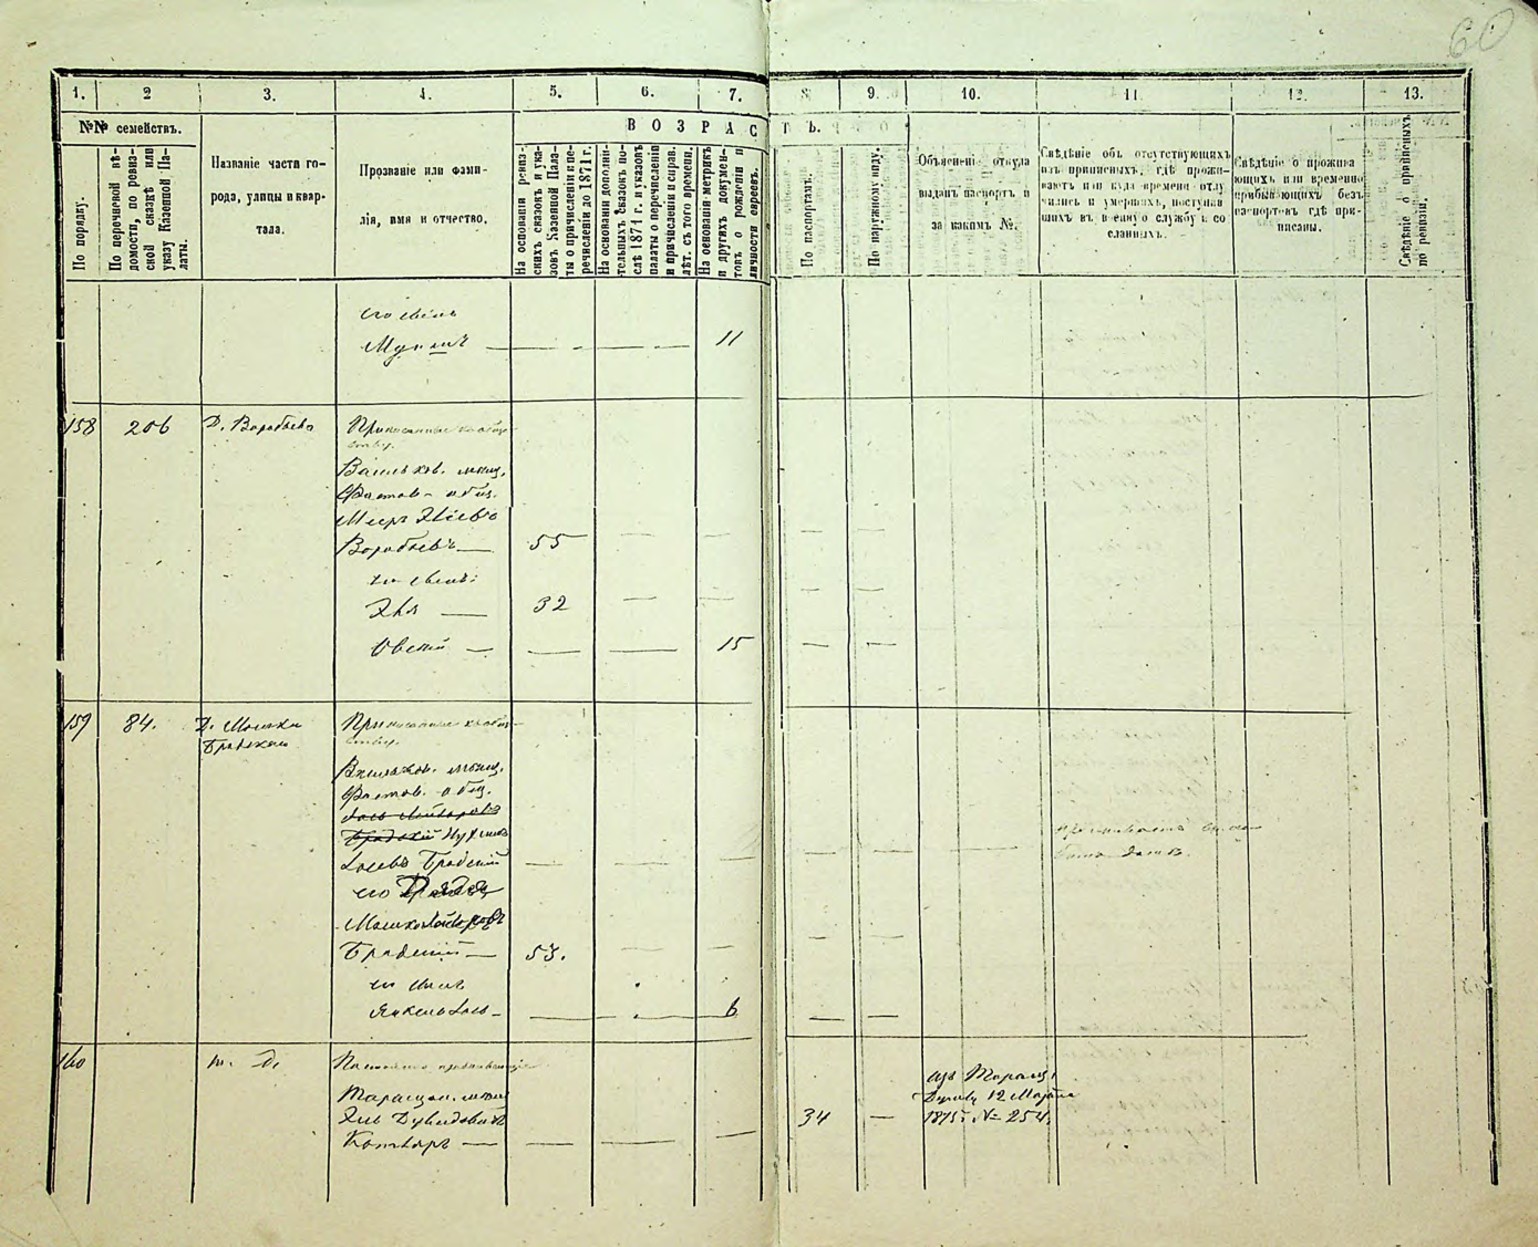 60
1. 2 3. 4. 5. 6. 7. 8 9. 10. 11. 12. 13.
№№ семействъ.
По порядку.
По перечневой вѣ-
домости, по ревиз-
ской сказкѣ или
указу Казенной Па-
латы.
Названіе части го-
рода, улицы и квар-
тала.
Прозваніе или фами-
лія, имя и отчество.
ВОЗРАСТЪ.
На основаніи ревиз-
скихъ сказокъ и ука-
зовъ Казенной Пала-
ты о причисленіи и пе-
речисленіи до 1871 г.
На основаніи дополни-
тельныхъ сказокъ по-
слѣ 1871 г. и указовъ
палаты о перечисленіи
и причисленіи и справ.
лѣт. съ того времени.
На основаніи метрикъ
и другихъ докумен-
товъ о рожденіи и
личности евреевъ.
По паспортамъ.
По наружному виду.
Объясненіе откуда
выданъ паспортъ и
за какимъ №.
Свѣдѣніе объ отсутствующихъ
изъ приписныхъ, гдѣ прожи-
ваютъ или куда времени отлу
чились и умершихъ, поступив
шихъ въ военную службу и со
сланныхъ.
Свѣдѣніе о прожива
ющихъ или временно
прибывающихъ безъ
паспортовъ гдѣ при-
писаны.
Свѣдѣніе о приписныхъ
по ревизіи.
его сынъ
11
158 206 Д. Воробьева
Васильков. мѣщ.
Фастов. общ.
Мееръ Эліевъ
Воробьевъ — 55
его сынъ:
Эля — 32
Овсей — 15
159 84. Д. Мошки
Бродскаго
Васильков. мѣщ.
Фастов. общ.
Бродскій
Іосевъ Бродскій
его Дядя
Мошко
Бродскій — 53.
его сынъ
Янкель Іось — 6
160 т. д.
Таращан. мѣщ
Эль Дувидовичъ
34 —
изъ Таращ.
Думы 12 Марта
1875 г. № 254.